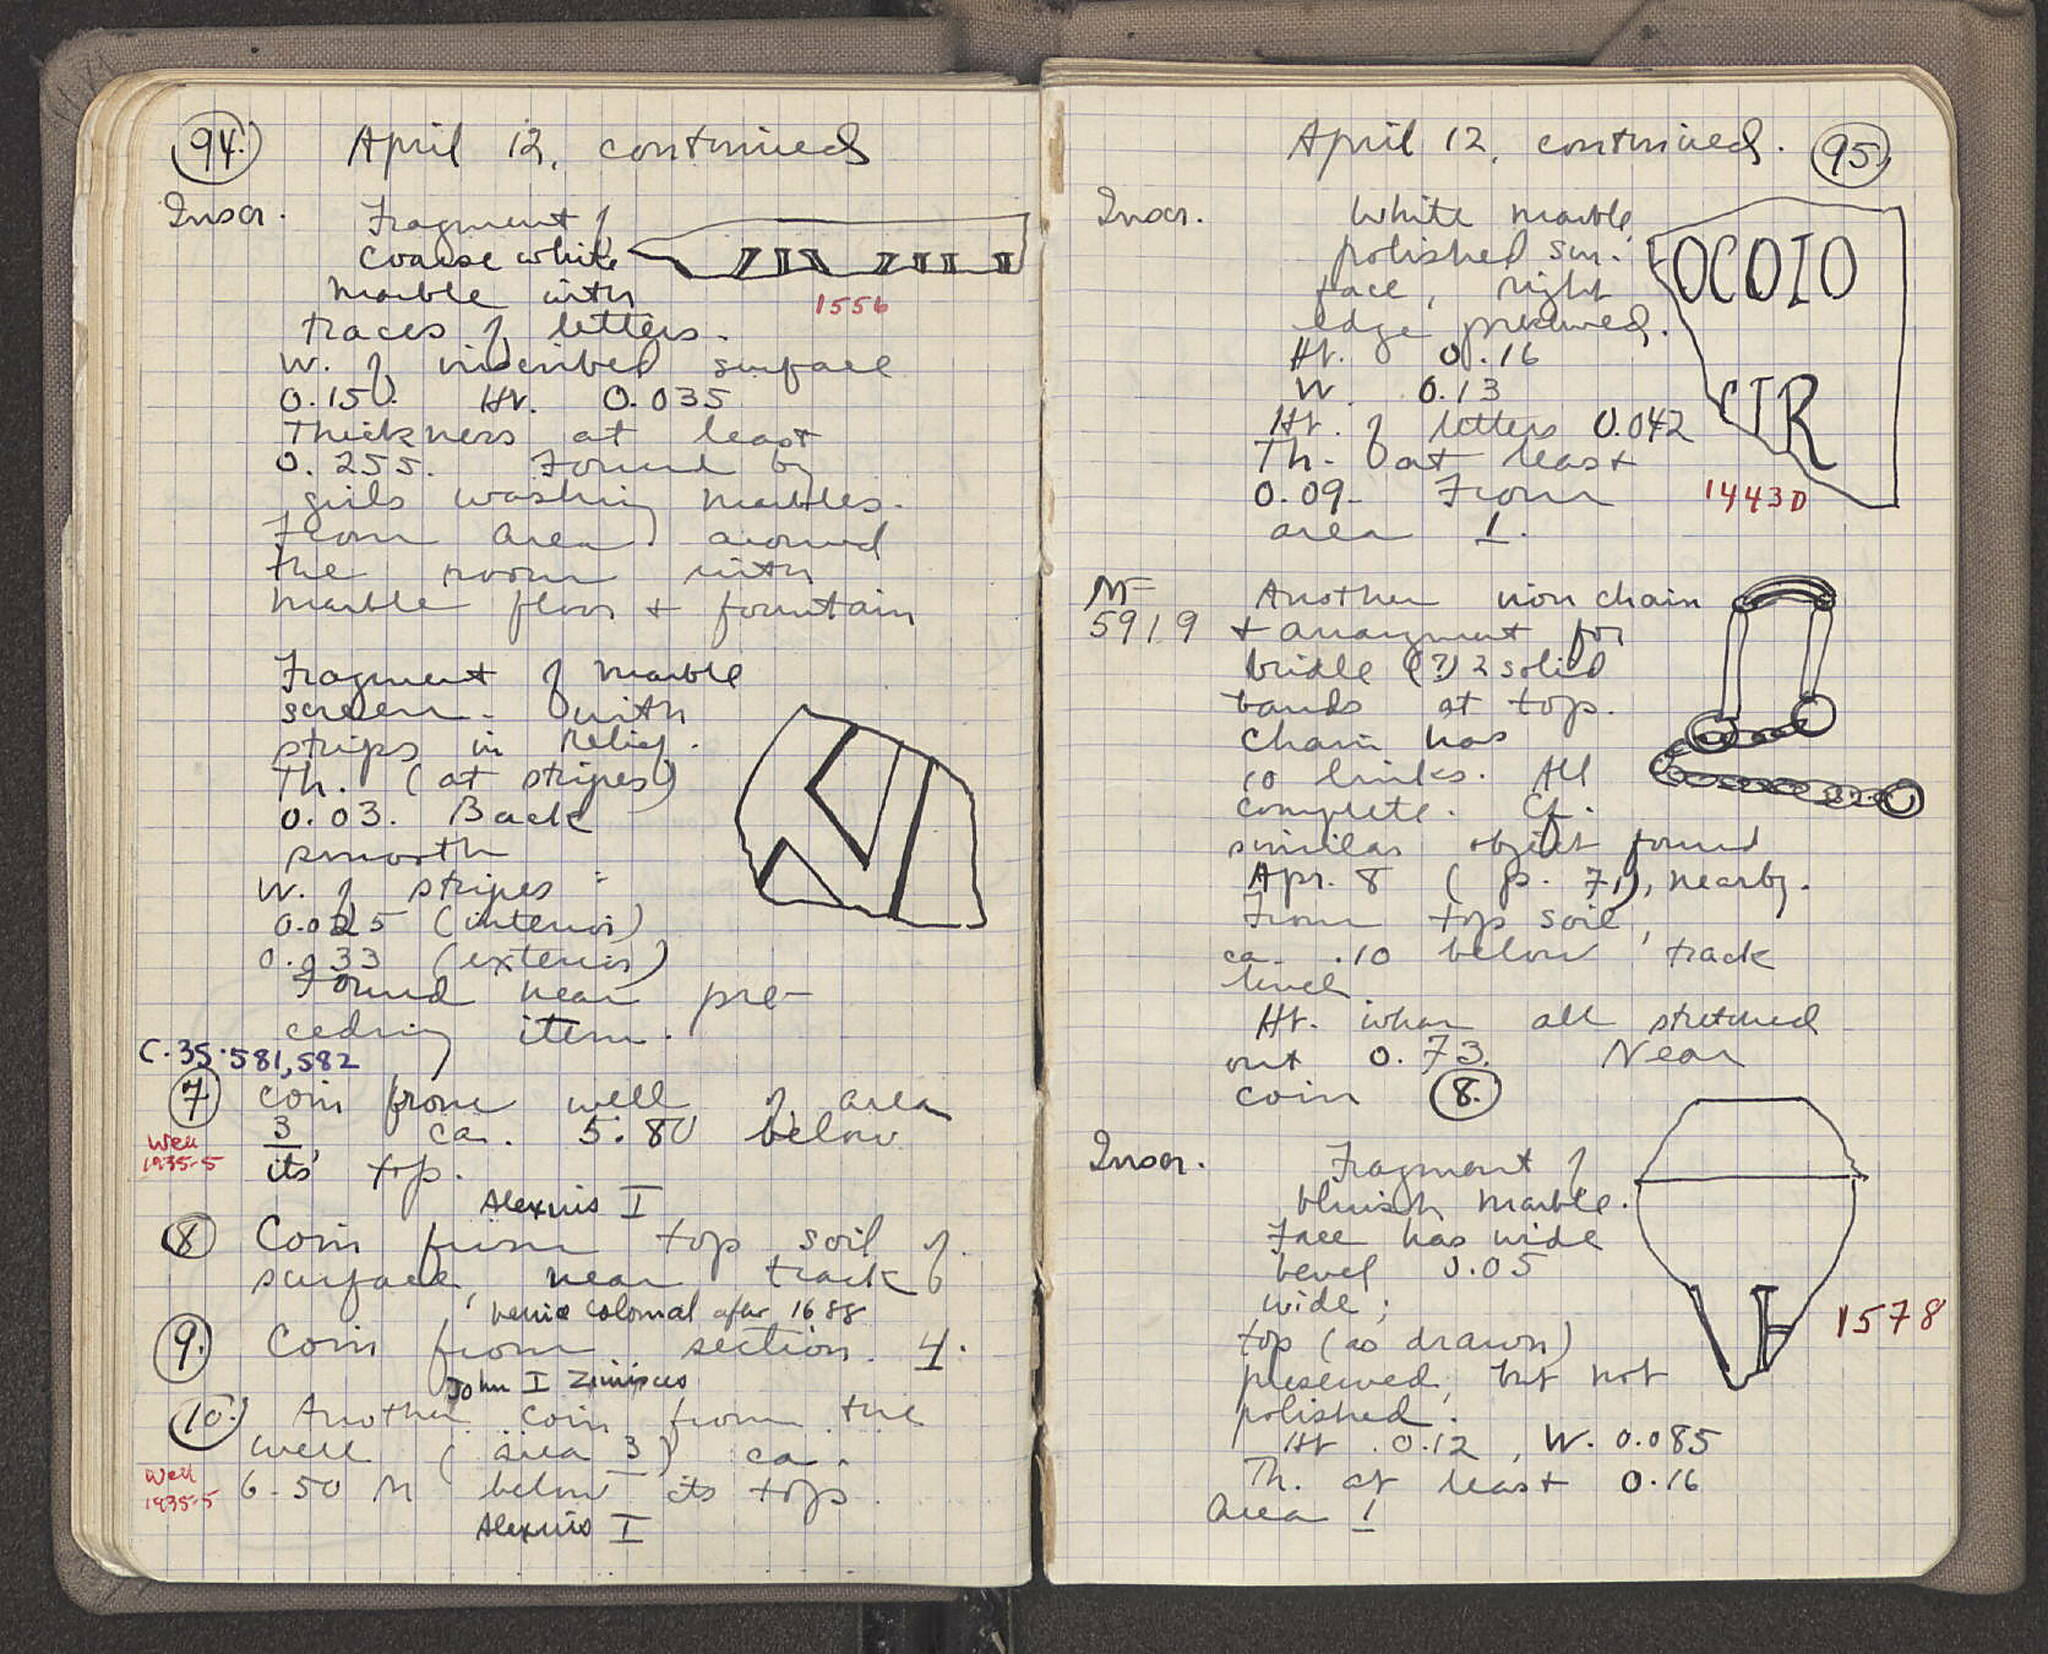 94.
April 12, continued
Inscr.
Fragment of
coarse white
marble with
1556
traces of letters.
W. of inscribed surface
0.150. Ht. 0.035
Thickness at least
0.255. Found by
girls washing marbles.
From area around
the room with
marble floor + fountain
Fragment of marble
screen - with
strips in relief.
Th. (at stripes)
0.03. Back
smooth
W. of stripes =
0.025 (interior)
0.033 (exterior)
Found near pre-
ceding item.
C.35.581,582
7 Coin from well of area
3, ca. 5.80 below
Well
1935-5
its top.
Alexius I
8 Coin from top soil of
surface, near track
Venice Colonial after 1688
9. Coin from section 4.
John I Zimisces
10. Another coin from the
well (area 3) ca.
Well
1935-5
6.50 M below its top.
Alexius I
April 12, continued. 95
Inscr.
White marble,
polished sur-
face, right
edge preserved.
OCOIO
Ht. 0.16
W. 0.13
CTR
Ht. of letters 0.042
Th. at least
0.09. From
1443D
area 1.
MF
5919
Another iron chain
+ arrangment for
bridle (?) 2 solid
bands at top.
Chain has
10 links. All
complete. Cf.
similar object found
Apr. 8 (p. 71), nearby.
From top soil,
ca. .10 below track
level
Ht. when all stretched
out 0.73. Near
coin 8.
Inscr.
Fragment of
bluish marble.
Face has wide
bevel 0.05
wide;
1578
top (as drawn)
preserved, but not
polished.
Ht. 0.12, W. 0.085
Th. at least 0.16
Area 1